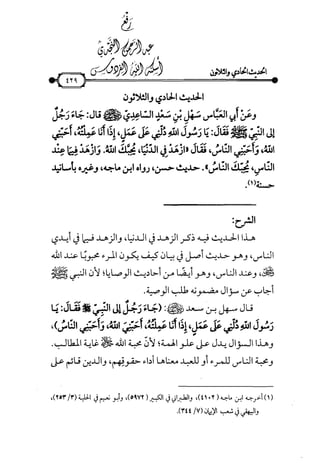 رفع
عبد الرحمن النجدي
أسكنه الله الفردوس
الحديث الحادي والثلاثون
٤٢٩
الحديث الحادي والثلاثون
وعَنْ أَبي العَبَّاس سَهْلِ بْنِ سَعْد السَّاعِدِيّ ﷺ قال: جَاءَ رَجُلٌ
إلى النَّبِي ﷺ فَقَالَ: يَا رَسُولَ اللهِ دُلَّنِي عَلَى عَمَلٍ، إِذَا أَنَا عَمِلْتُهُ، أَحَبَّنِي
اللهُ، وَأَحَبَّنِي النَّاسُ، فَقَالَ: «ازْهَدْ فِي الدُّنْيَا، يُحِبُّكَ اللهُ. وَازْهَدْ فِيمَا عِنْدَ
النَّاسِ، يُحِبُّكَ النَّاسُ». حديث حسن، رواه ابن ماجه، وغيره بأسانيد
حسنة(١).
الشرح:
هذا الحديث فيه ذكر الزهد في الدنيا، والزهد فيما في أيدي
الناس، وهو حديث أصل في بيان كيف يكون المرء محبوبًا عند الله
، وعند الناس، وهو أيضًا من أحاديث الوصايا؛ لأن النبي ﷺ
أجاب عن سؤال مضمونه طلب الوصية.
قال سهل بن سعد : (جَاءَ رَجُلٌ إلى النَّبِي ﷺ فَقَالَ: يَا
رَسُولَ اللهِ دُلَّنِي عَلَى عَمَلٍ، إِذَا أَنَا عَمِلْتُهُ، أَحَبَّنِي اللهُ، وَأَحَبَّنِي النَّاسُ)،
وهذا السؤال يدل على علو الهمة؛ لأن محبة الله غاية المطالب.
ومحبة الناس للمرء أو للعبد معناها أداء حقوقهم، والدين قائم على
(١) أخرجه ابن ماجه (٤١٠٢)، والطبراني في الكبير (٥٩٧٢)، وأبو نعيم في الحلية (٣/ ٢٥٣)،
والبيهقي في شعب الإيمان (٧/ ٣٤٤).